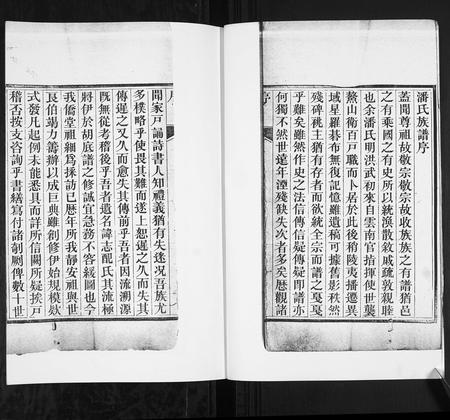 潘氏族譜序
蓋聞尊祖故敬宗敬宗故收族族之有譜猶邑
之有乘國之有史所以統渙散敘戚疏敦親睦
也余潘氏明洪武初來自雲南官指揮使世襲
鰲山衛百戶職而卜居於此後稍陵夷播遷異
域星羅碁布無復記憶雖遺稿可據舊影秩然
殘碑祧主猶有存者而欲統全宗而譜之戛戛
乎難矣雖然作史之法信傳信疑傳疑即譜亦
何獨不然世遠年湮殘缺失次者多矣歷觀諸
序
聞家戶誦詩書人知禮義猶有失迷況吾族尤
多樸略乎使畏其難而遂止恕遲之久而失其
傳遲之又久而愈失其傳前乎吾者因流溯源
既無從考稽後乎吾者遺名諱志配氏其流極
將伊於胡底譜之修誠宜急務不容緩圖也今
我僑堂祖細爲採訪已歷年所我靜安祖與世
良伯竭力善辦以成巨典雖創修伊始規模欵
式發凡起例未能悉具而詳所信闕所疑挨戶
稽否按支咨詢乎書繕寫付諸剞劂俾數十世